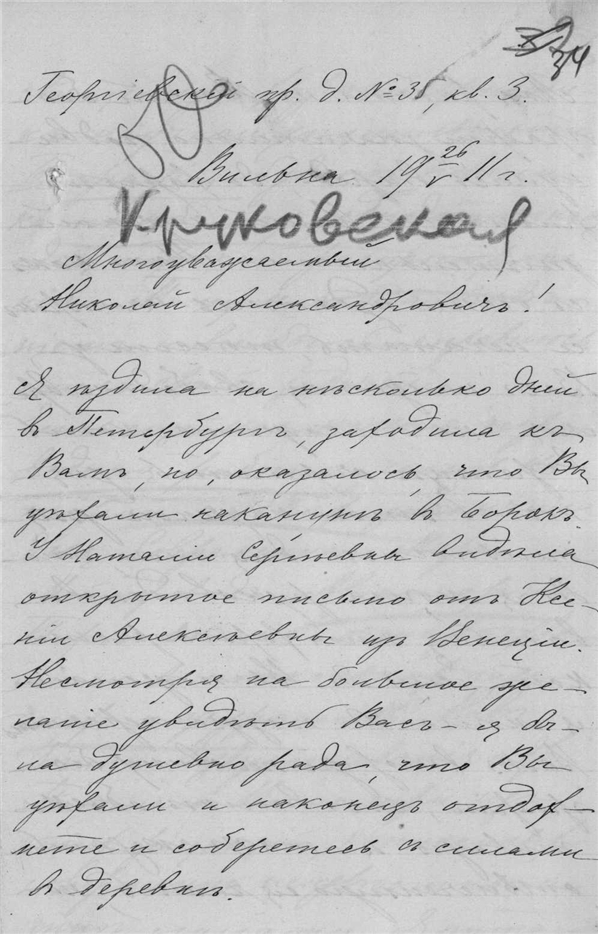 34
Георгіевскій пр. д. № 35, кв. 3.
Вильна 19 26/V 11 г.
Круковская
Многоуважаемый
Николай Александровичъ!
Я ѣздила на нѣсколько дней
в Петербургъ, заходила къ
Вамъ, но, оказалось, что Вы
уѣхали наканунѣ в Борокъ.
У Наталіи Сергѣевны видѣла
открытое письмо отъ Ксе-
ніи Алексѣевны изъ Венеціи.
Несмотря на большое же-
ланіе увидѣть Васъ – я бы-
ла душевно рада, что Вы
уѣхали и наконецъ отдох-
нете и соберетесь съ силами
в деревнѣ.